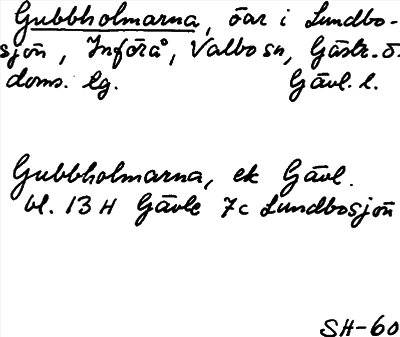 Gubbholmarna, öar i Lundbo-
sjön, Införå, Valbo sn, Gästr. ö.
doms. lg. Gävl. l.
Gubbholmarna, ek Gävl.
bl. 13 H Gävle 7c Lundbosjön
SH-60